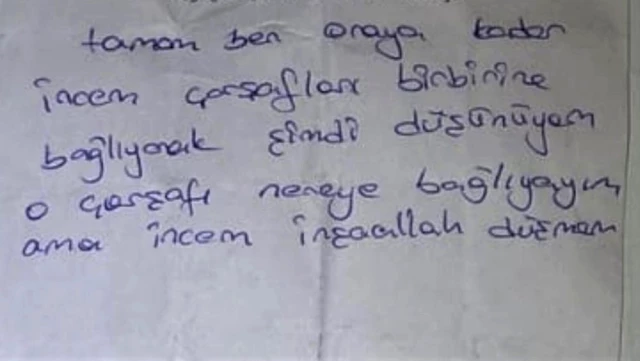 tamam ben oraya kadar
incem çarşafları birbirine
bağlıyarak şimdi düşünüyom
o çarşafı nereye bağlıyayım
ama incem inşaallah düşmem